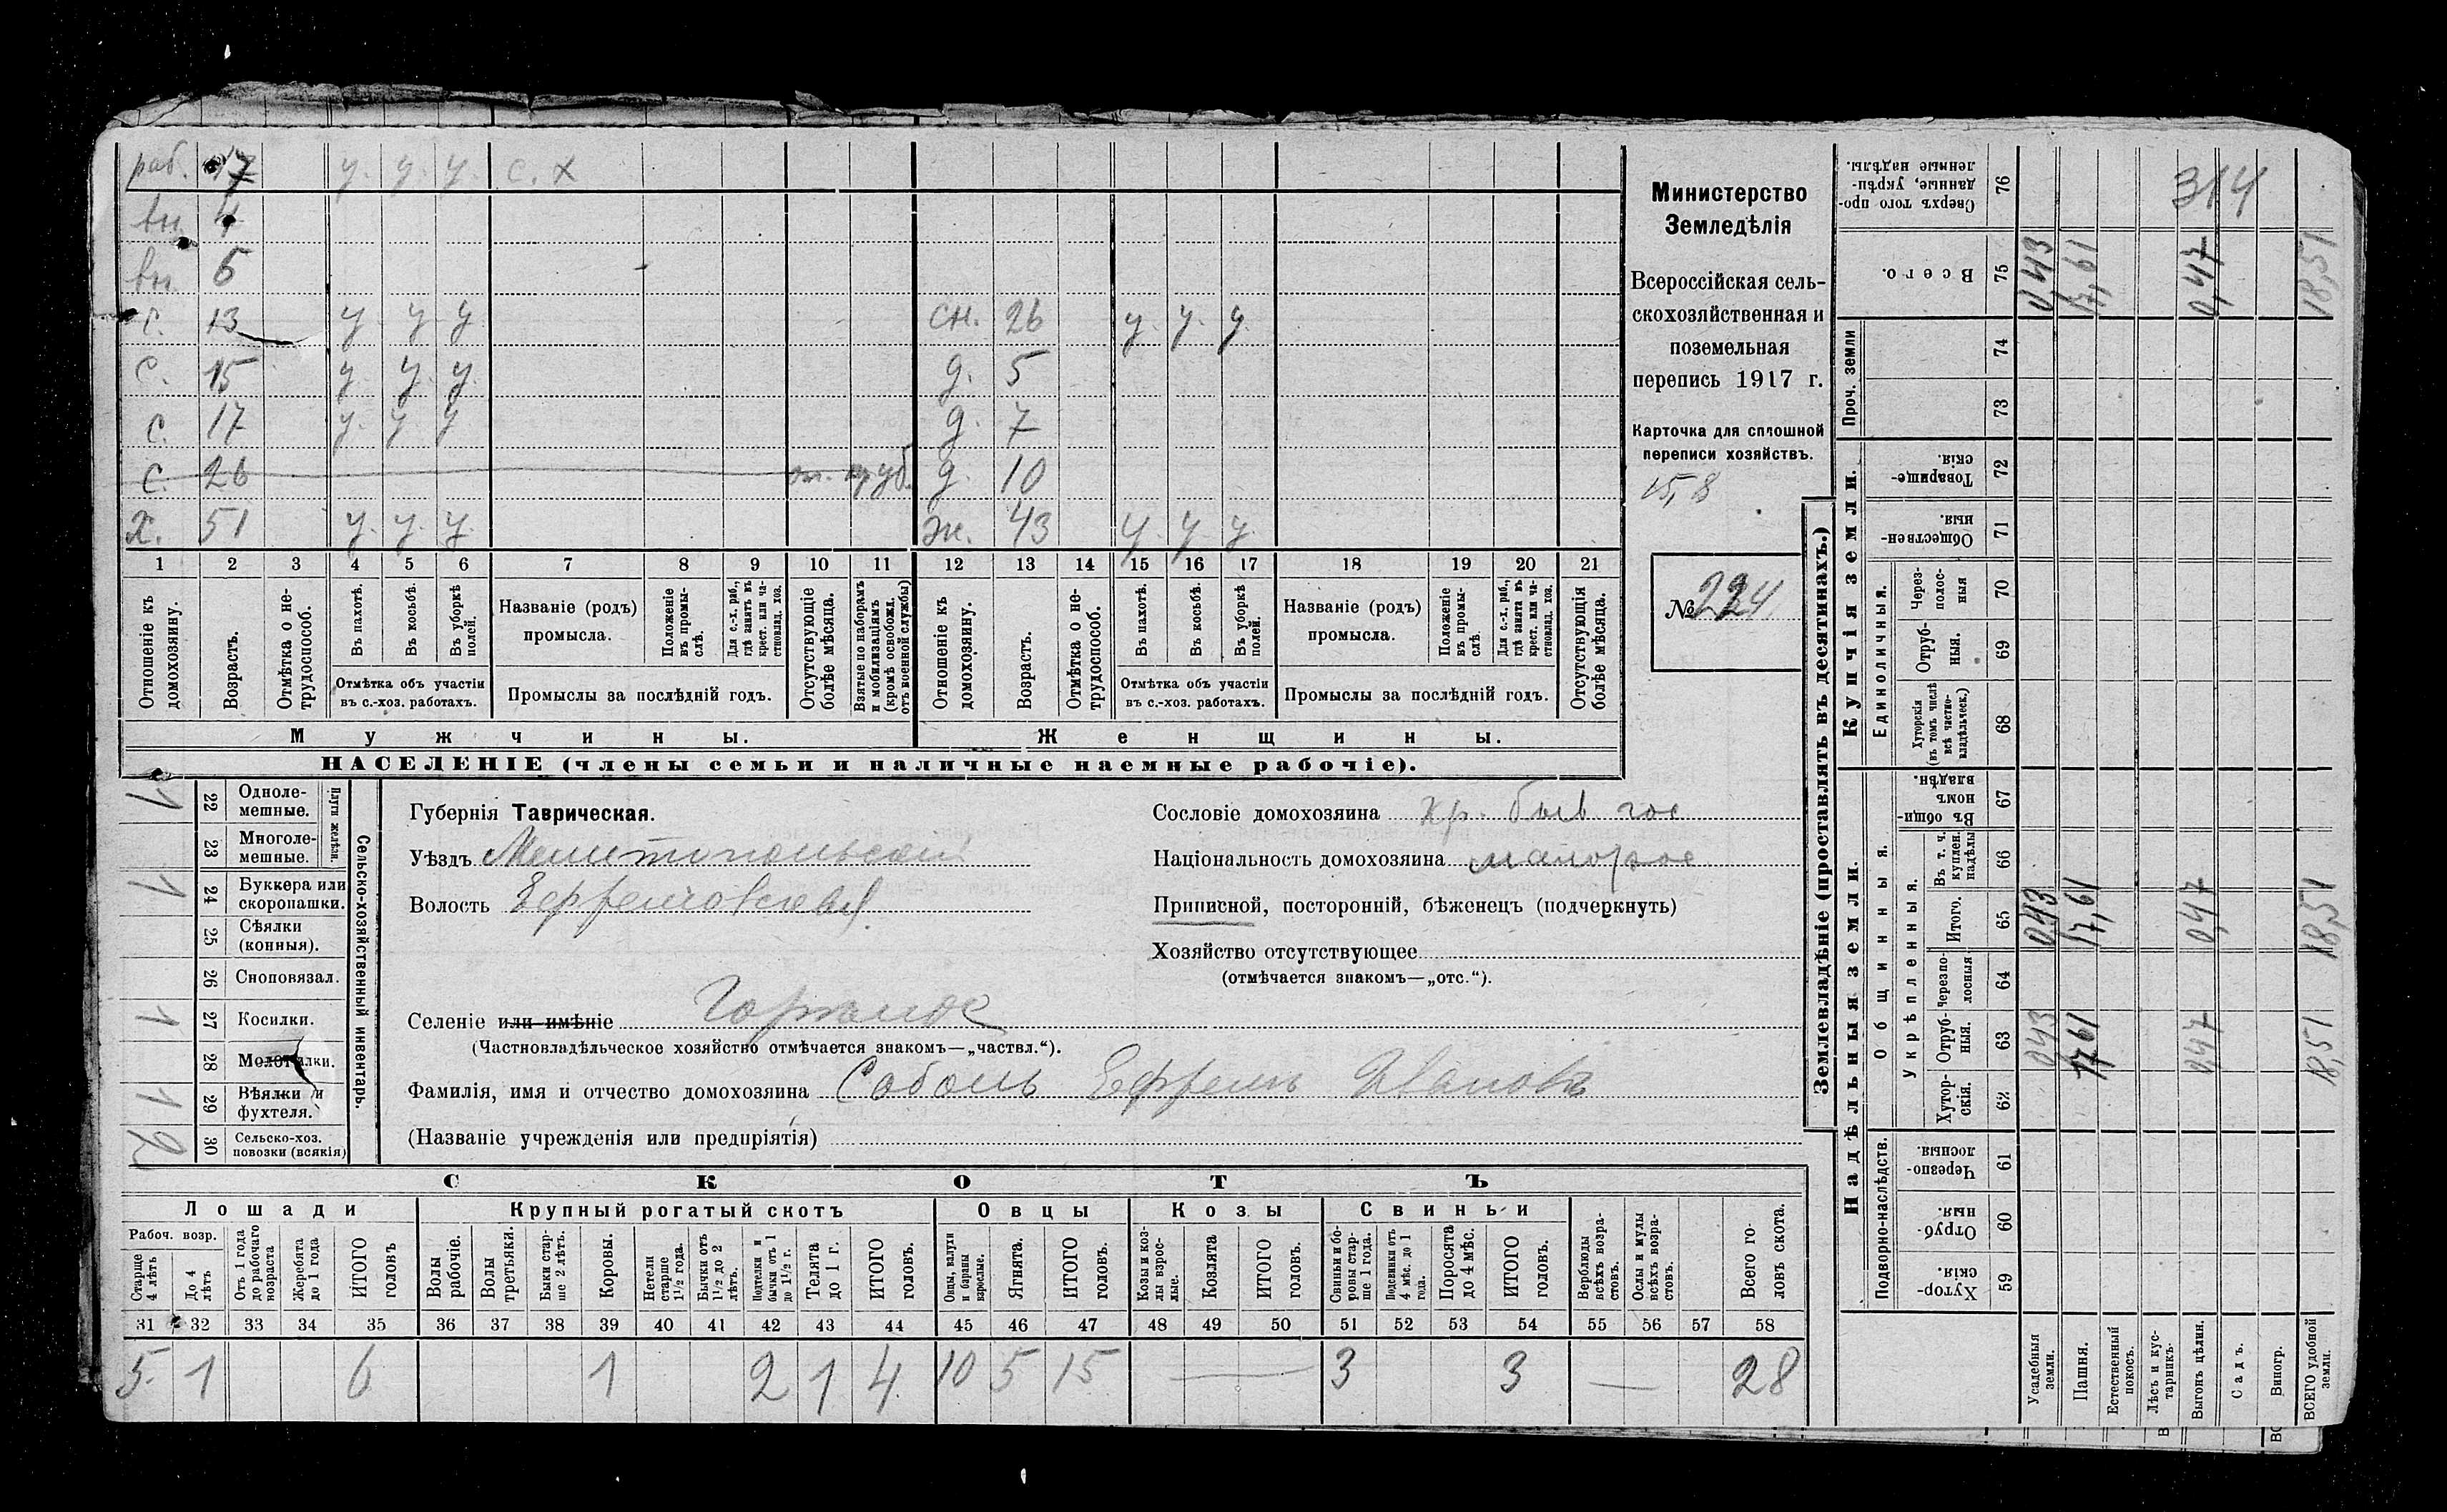 раб. 17 у. у. у. с. х
вн. 4
вн. 5
с. 13 у. у. у. сн. 26 у. у. у.
с. 15 у. у. у. д. 5
с. 17 у. у. у. д. 7
с. 26 д. 10
х. 51 у. у. у. ж. 43 у. у. у.
1 2 3 4 5 6 7 8 9 10 11 12 13 14 15 16 17 18 19 20 21
Отношеніе къ домохозяину.
Возрастъ.
Отмѣтка о не-
трудоспособ.
Въ пахотѣ.
Въ косьбѣ.
Въ уборкѣ полей.
Отмѣтка объ участіи
въ с.-хоз. работахъ.
Названіе (родъ)
промысла.
Положеніе
въ промы-
слѣ.
Для с.-х. раб.,
гдѣ занятъ въ
крест. или ча-
стновлад. хоз.
Промыслы за послѣдній годъ.
Отсутствующіе
болѣе мѣсяца.
Взятые по наборамъ
и мобилизаціямъ
(кромѣ освобожд.
отъ военной службы)
Отношеніе къ домохозяину.
Возрастъ.
Отмѣтка о не-
трудоспособ.
Въ пахотѣ.
Въ косьбѣ.
Въ уборкѣ полей.
Отмѣтка объ участіи
въ с.-хоз. работахъ.
Названіе (родъ)
промысла.
Положеніе
въ промы-
слѣ.
Для с.-х. раб.,
гдѣ занята въ
крест. или ча-
стновлад. хоз.
Промыслы за послѣдній годъ.
Отсутствующія
болѣе мѣсяца.
Мужчины. Женщины.
НАСЕЛЕНІЕ (члены семьи и наличные наемные рабочіе).
Министерство
Земледѣлія
Всероссійская сель-
скохозяйственная и
поземельная
перепись 1917 г.
Карточка для сплошной
переписи хозяйствъ.
15,8
№ 224
Сельско-хозяйственный инвентарь.
Плуги желѣзн.
1 22 Однолемешные.
23 Многолемешные.
1 24 Буккера или скоропашки.
25 Сѣялки (конныя).
26 Сноповязал.
1 27 Косилки.
28 Молотилки.
1 29 Вѣялки и фухтеля.
2 30 Сельско-хоз. повозки (всякія)
Губернія Таврическая.
Уѣздъ Мелитопольскій
Волость Ефремовская
Сословіе домохозяина кр. быв гос
Національность домохозяина малорос
Приписной, посторонній, бѣженецъ (подчеркнуть)
Хозяйство отсутствующее
(отмѣчается знакомъ—„отс.“).
Селеніе или имѣніе
(Частновладѣльческое хозяйство отмѣчается знакомъ—„частвл.“).
Фамилія, имя и отчество домохозяина Соболь Ефремъ Ивановъ
(Названіе учрежденія или предпріятія)
СКОТЪ
Лошади Крупный рогатый скотъ Овцы Козы Свиньи
Рабоч. возр.
Старше 4 лѣтъ
До 4 лѣтъ
Отъ 1 года до рабочаго возраста
Жеребята до 1 года
ИТОГО головъ
Волы рабочіе.
Волы третьяки.
Быки стар-
ше 2 лѣтъ.
Коровы.
Нетели старше 1½ года.
Бычки отъ 1½ до 2 лѣтъ.
Подтелки и бычки отъ 1 до 1½ г.
Телята до 1 г.
ИТОГО головъ.
Овцы, валухи и бараны взрослые.
Ягнята.
ИТОГО головъ.
Козы и коз-
лы взрос-
лые.
Козлята
ИТОГО головъ.
Свиньи и бо-
ровы стар-
ше 1 года.
Подсвинки отъ 4 мѣс. до 1 года.
Поросята до 4 мѣс.
ИТОГО головъ.
Верблюды всѣхъ возра-
стовъ.
Ослы и мулы всѣхъ возра-
стовъ.
Всего го-
ловъ скота.
31 32 33 34 35 36 37 38 39 40 41 42 43 44 45 46 47 48 49 50 51 52 53 54 55 56 57 58
5 1 6 1 2 1 4 10 5 15 — 3 3 — 28
Землевладѣніе (проставлять въ десятинахъ.)
Надѣльныя земли. Купчія земли. Проч. земли
Подворно-наслѣдств.
Общинныя.
Укрѣпленныя.
Единоличныя.
Сверхъ того про-
данные, укрѣп-
ленные надѣлы. 76 314
Всего. 75 0,43 17,61 0,47 18,51
74
73
Товарище-
скія. 72
Обществен-
ныя. 71
Через-
полос-
ныя 70
Отруб-
ныя. 69
Хуторскія (въ томъ числѣ всѣ частно-
владѣльческ.) 68
Въ общи-
номъ владѣн. 67
Въ т. ч. куплен. надѣлы 66
Итого. 65 0,43 17,61 0,47 18,51
Черезпо-
лосныя 64
Отруб-
ныя. 63 0,43 17,61 0,47 18,51
Хутор-
скія. 62
Черезпо-
лосныя. 61
Отруб-
ныя. 60
Хутор-
скія. 59
Усадебныя земли.
Пашня.
Естественный покосъ.
Лѣсъ и кус-
тарникъ.
Выгонъ цѣлин.
Садъ.
Виногр.
ВСЕГО удобной земли.